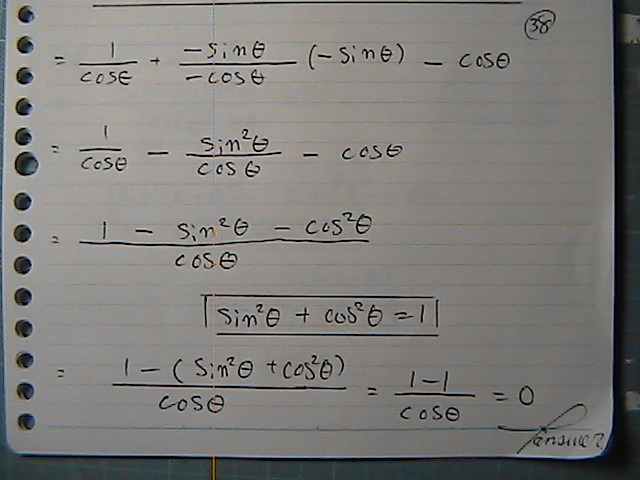 38
= 1/cosθ + -sinθ/-cosθ (-sinθ) - cosθ
= 1/cosθ - sin²θ/cosθ - cosθ
= 1 - sin²θ - cos²θ/cosθ
sin²θ + cos²θ = 1
= 1-(sin²θ + cos²θ)/cosθ = 1-1/cosθ = 0
answer